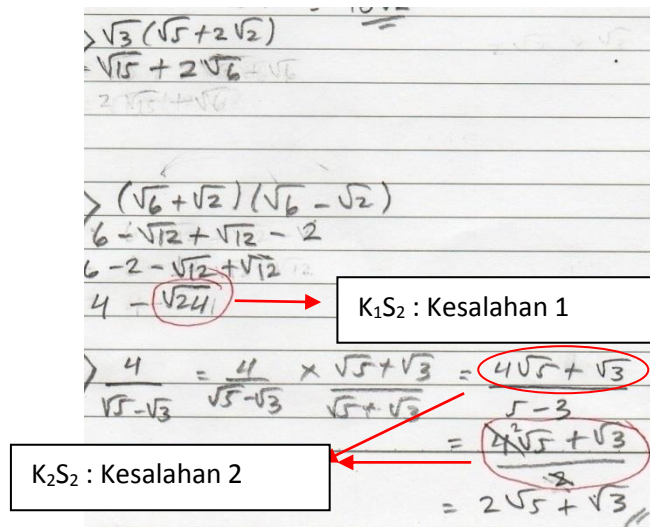 > √3 (√5 + 2√2)
= √15 + 2√6
> (√6 + √2) (√6 - √2)
6 - √12 + √12 - 2
6 - 2 - √12 + √12
4 - √24
K₁S₂ : Kesalahan 1
> 4/(√5 - √3) = 4/(√5 - √3) × (√5 + √3)/(√5 + √3) = (4√5 + √3)/(5 - 3)
= (4²√5 + √3)/2
K₂S₂ : Kesalahan 2
= 2√5 + √3